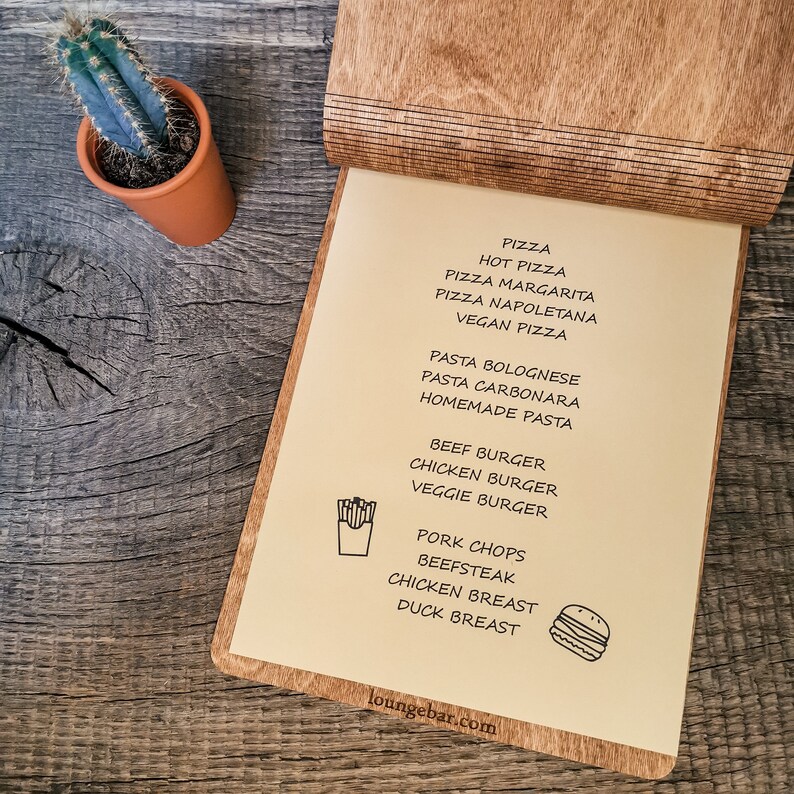 PIZZA
HOT PIZZA
PIZZA MARGARITA
PIZZA NAPOLETANA
VEGAN PIZZA
PASTA BOLOGNESE
PASTA CARBONARA
HOMEMADE PASTA
BEEF BURGER
CHICKEN BURGER
VEGGIE BURGER
PORK CHOPS
BEEFSTEAK
CHICKEN BREAST
DUCK BREAST
loungebar.com